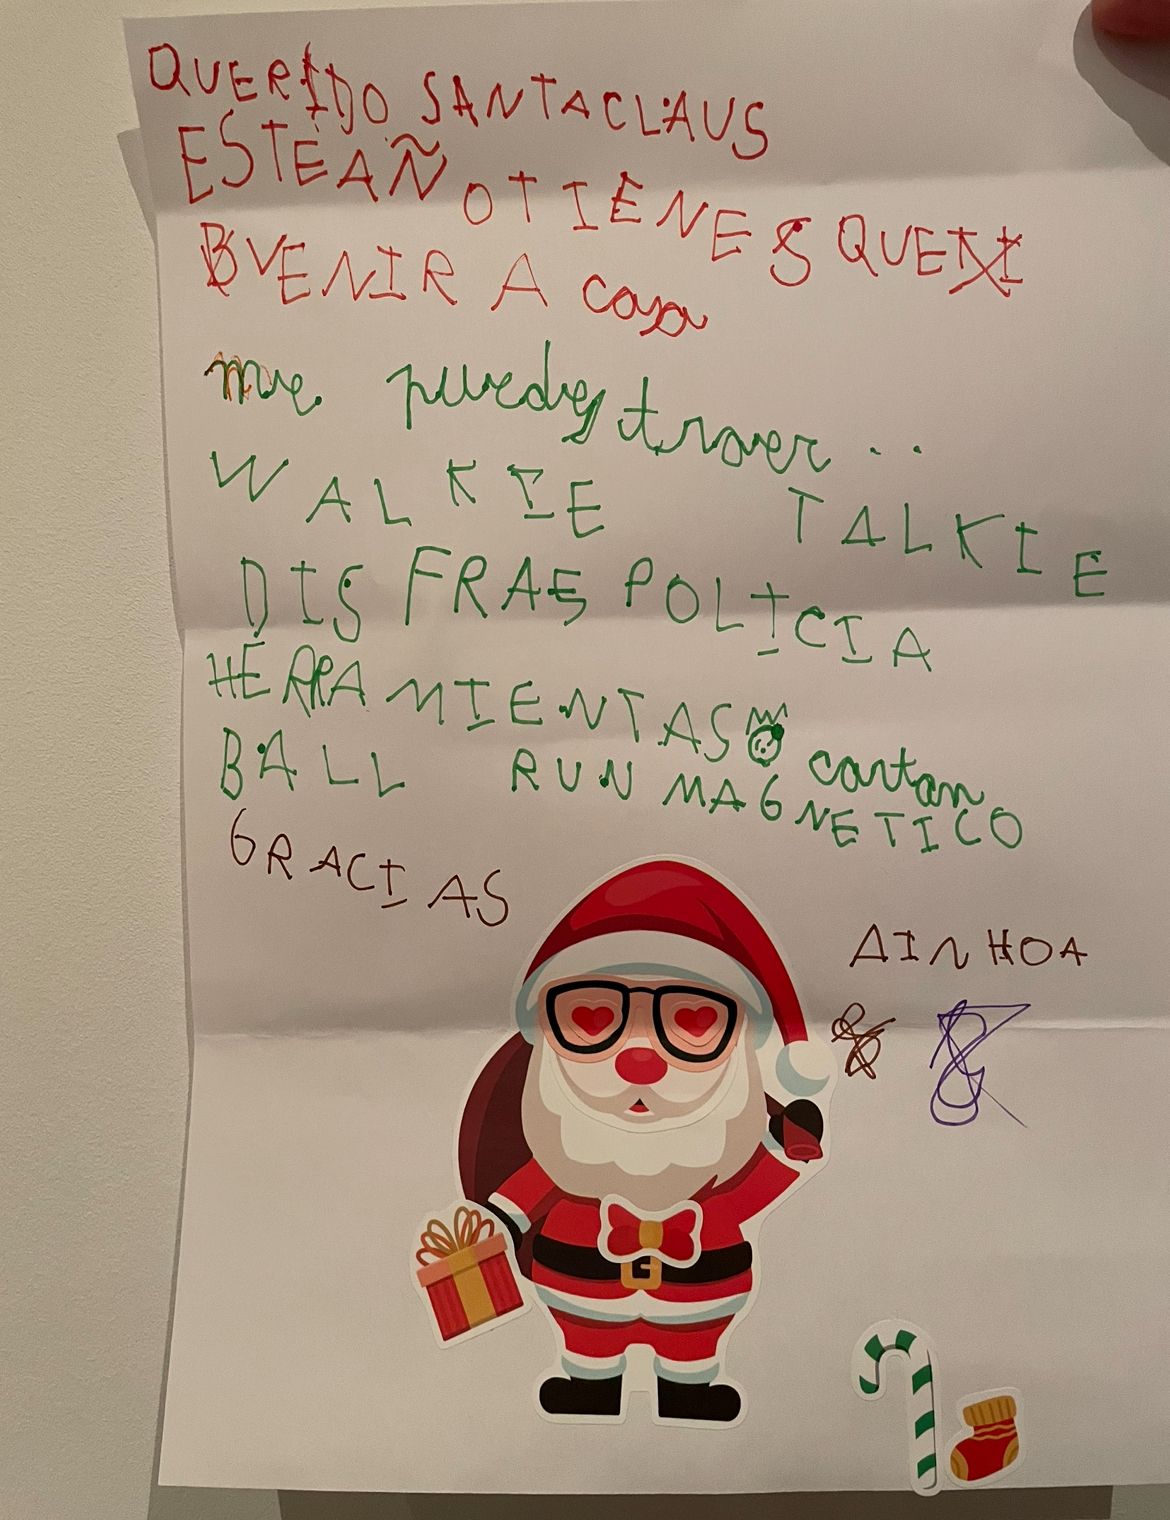 QUERIDO SANTACLAUS
ESTE AÑO TIENES QUE
VENIR A casa
me puedes traer...
WALKIE TALKIE
DISFRAS POLICIA
HERRAMIENTAS
cartan
BALL RUN MAGNETICO
GRACIAS
AINHOA